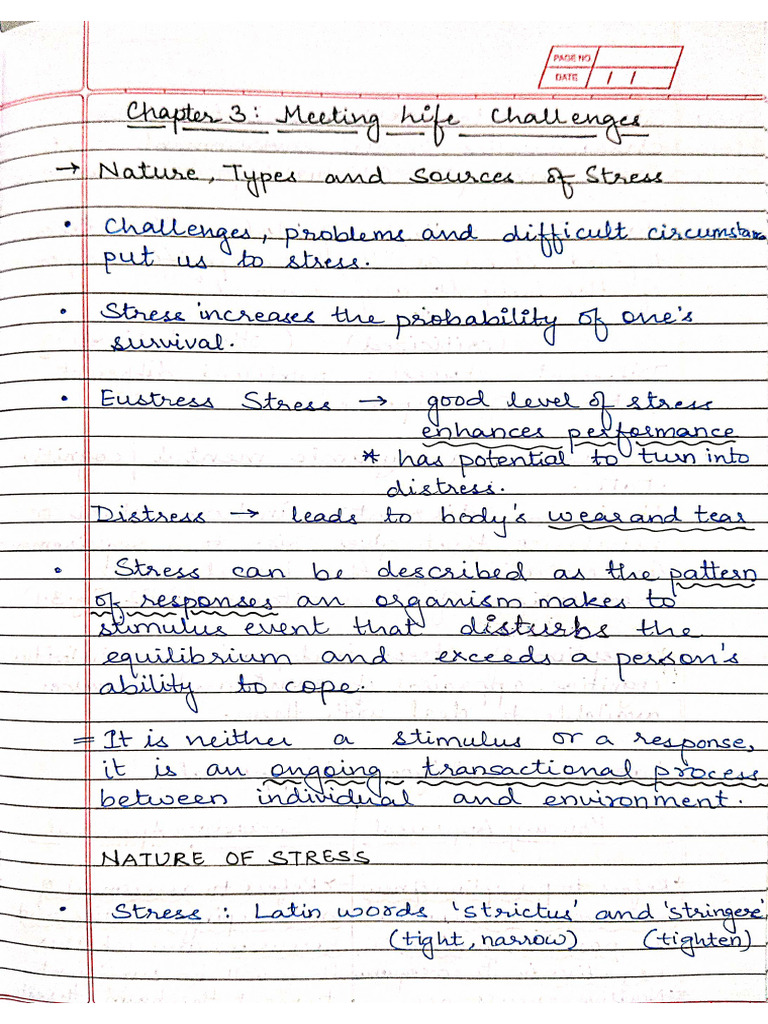 PAGE NO.
DATE / /
Chapter 3: Meeting Life Challenges
→ Nature, Types and Sources of Stress
• Challenges, problems and difficult circumstances
put us to stress.
• Stress increases the probability of one's
survival.
• Eustress Stress → good level of stress
enhances performance
* has potential to turn into
distress.
Distress → leads to body's wear and tear
• Stress can be described as the pattern
of responses an organism makes to
stimulus event that disturbs the
equilibrium and exceeds a person's
ability to cope.
= It is neither a stimulus or a response,
it is an ongoing transactional process
between individual and environment.
NATURE OF STRESS
• Stress : Latin words 'strictus' and 'stringere'
(tight, narrow) (tighten)